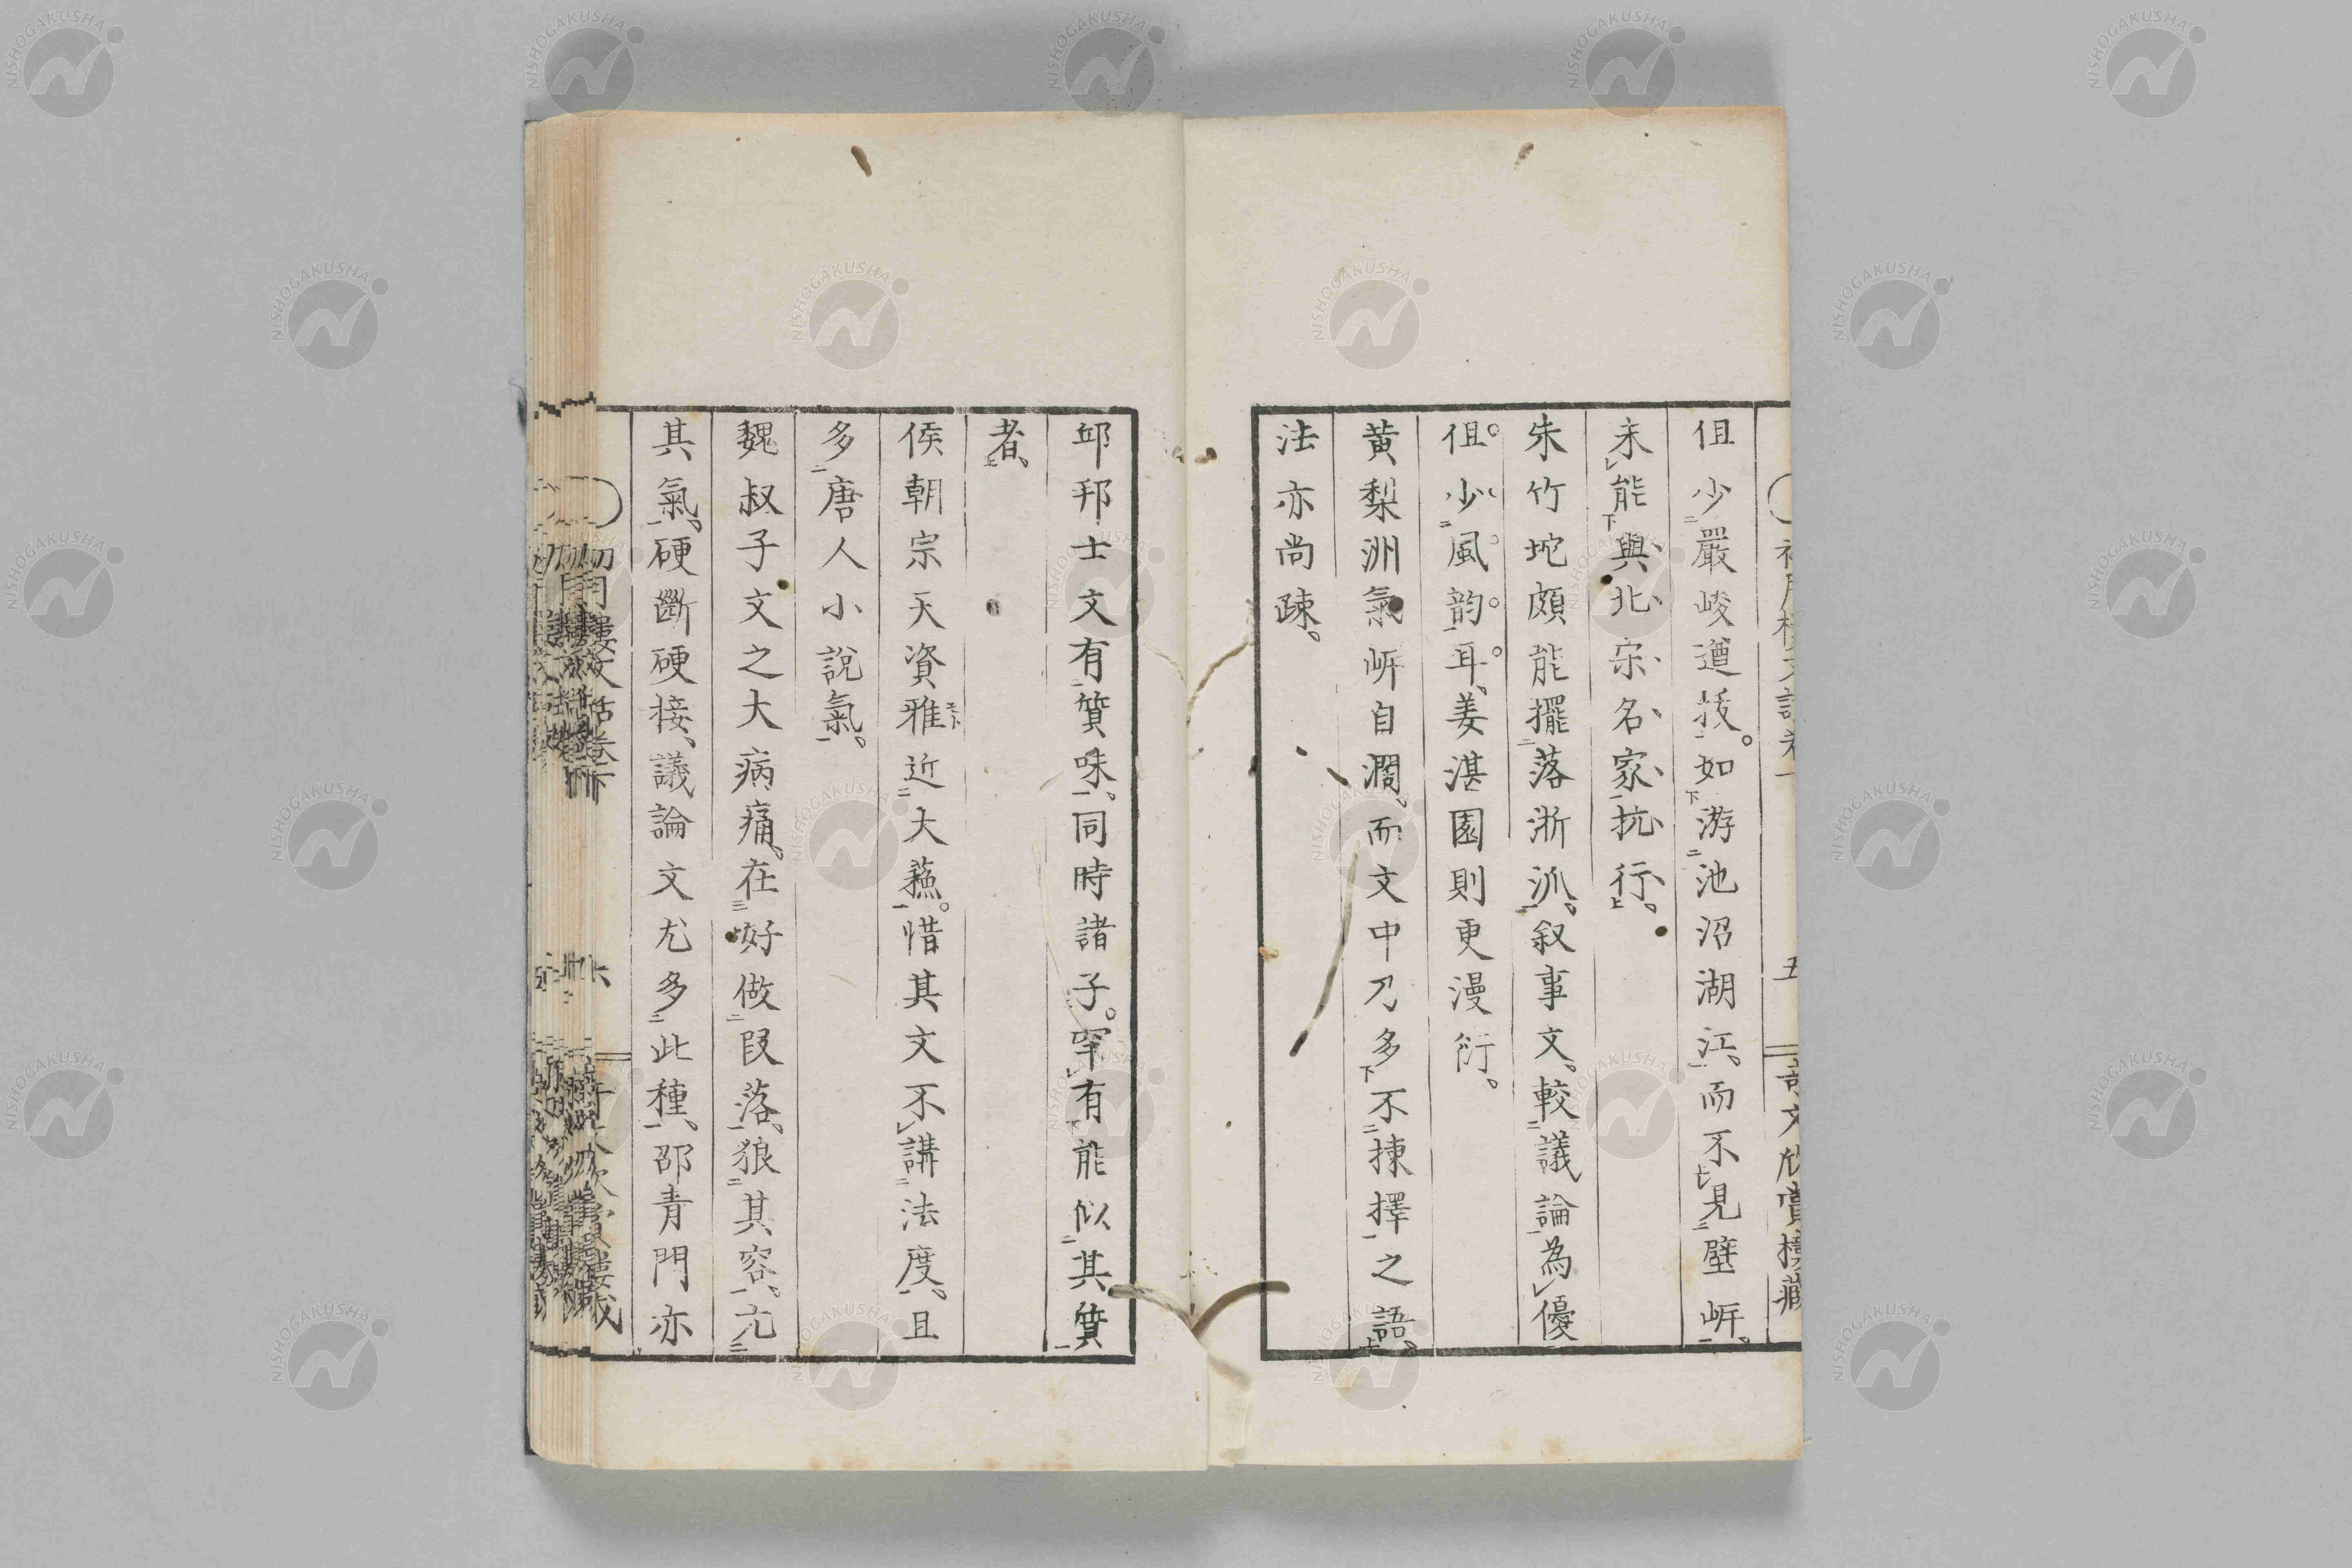 但少嚴峻遒拔。如游池沼湖江、而不見壁岍、
未能與北宋名家抗行。
朱竹垞頗能擺落浙派、叙事文、較議論為優
但少風韵耳、姜湛園則更漫衍。
黄梨洲氣岍自濶、而文中乃多不揀擇之語。
法亦尚疎。
五
文欣賞樓藏
邱邦士文有質味、同時諸子。罕有能似其質
者、
侯朝宗天資雅近大蘇。惜其文不講法度、且
多唐人小說氣。
魏叔子文之大病痛、在好做段落、狼其容、亢
其氣、硬斷硬接、議論文尤多此種、邵青門亦
六
NISHOGAKUSHA